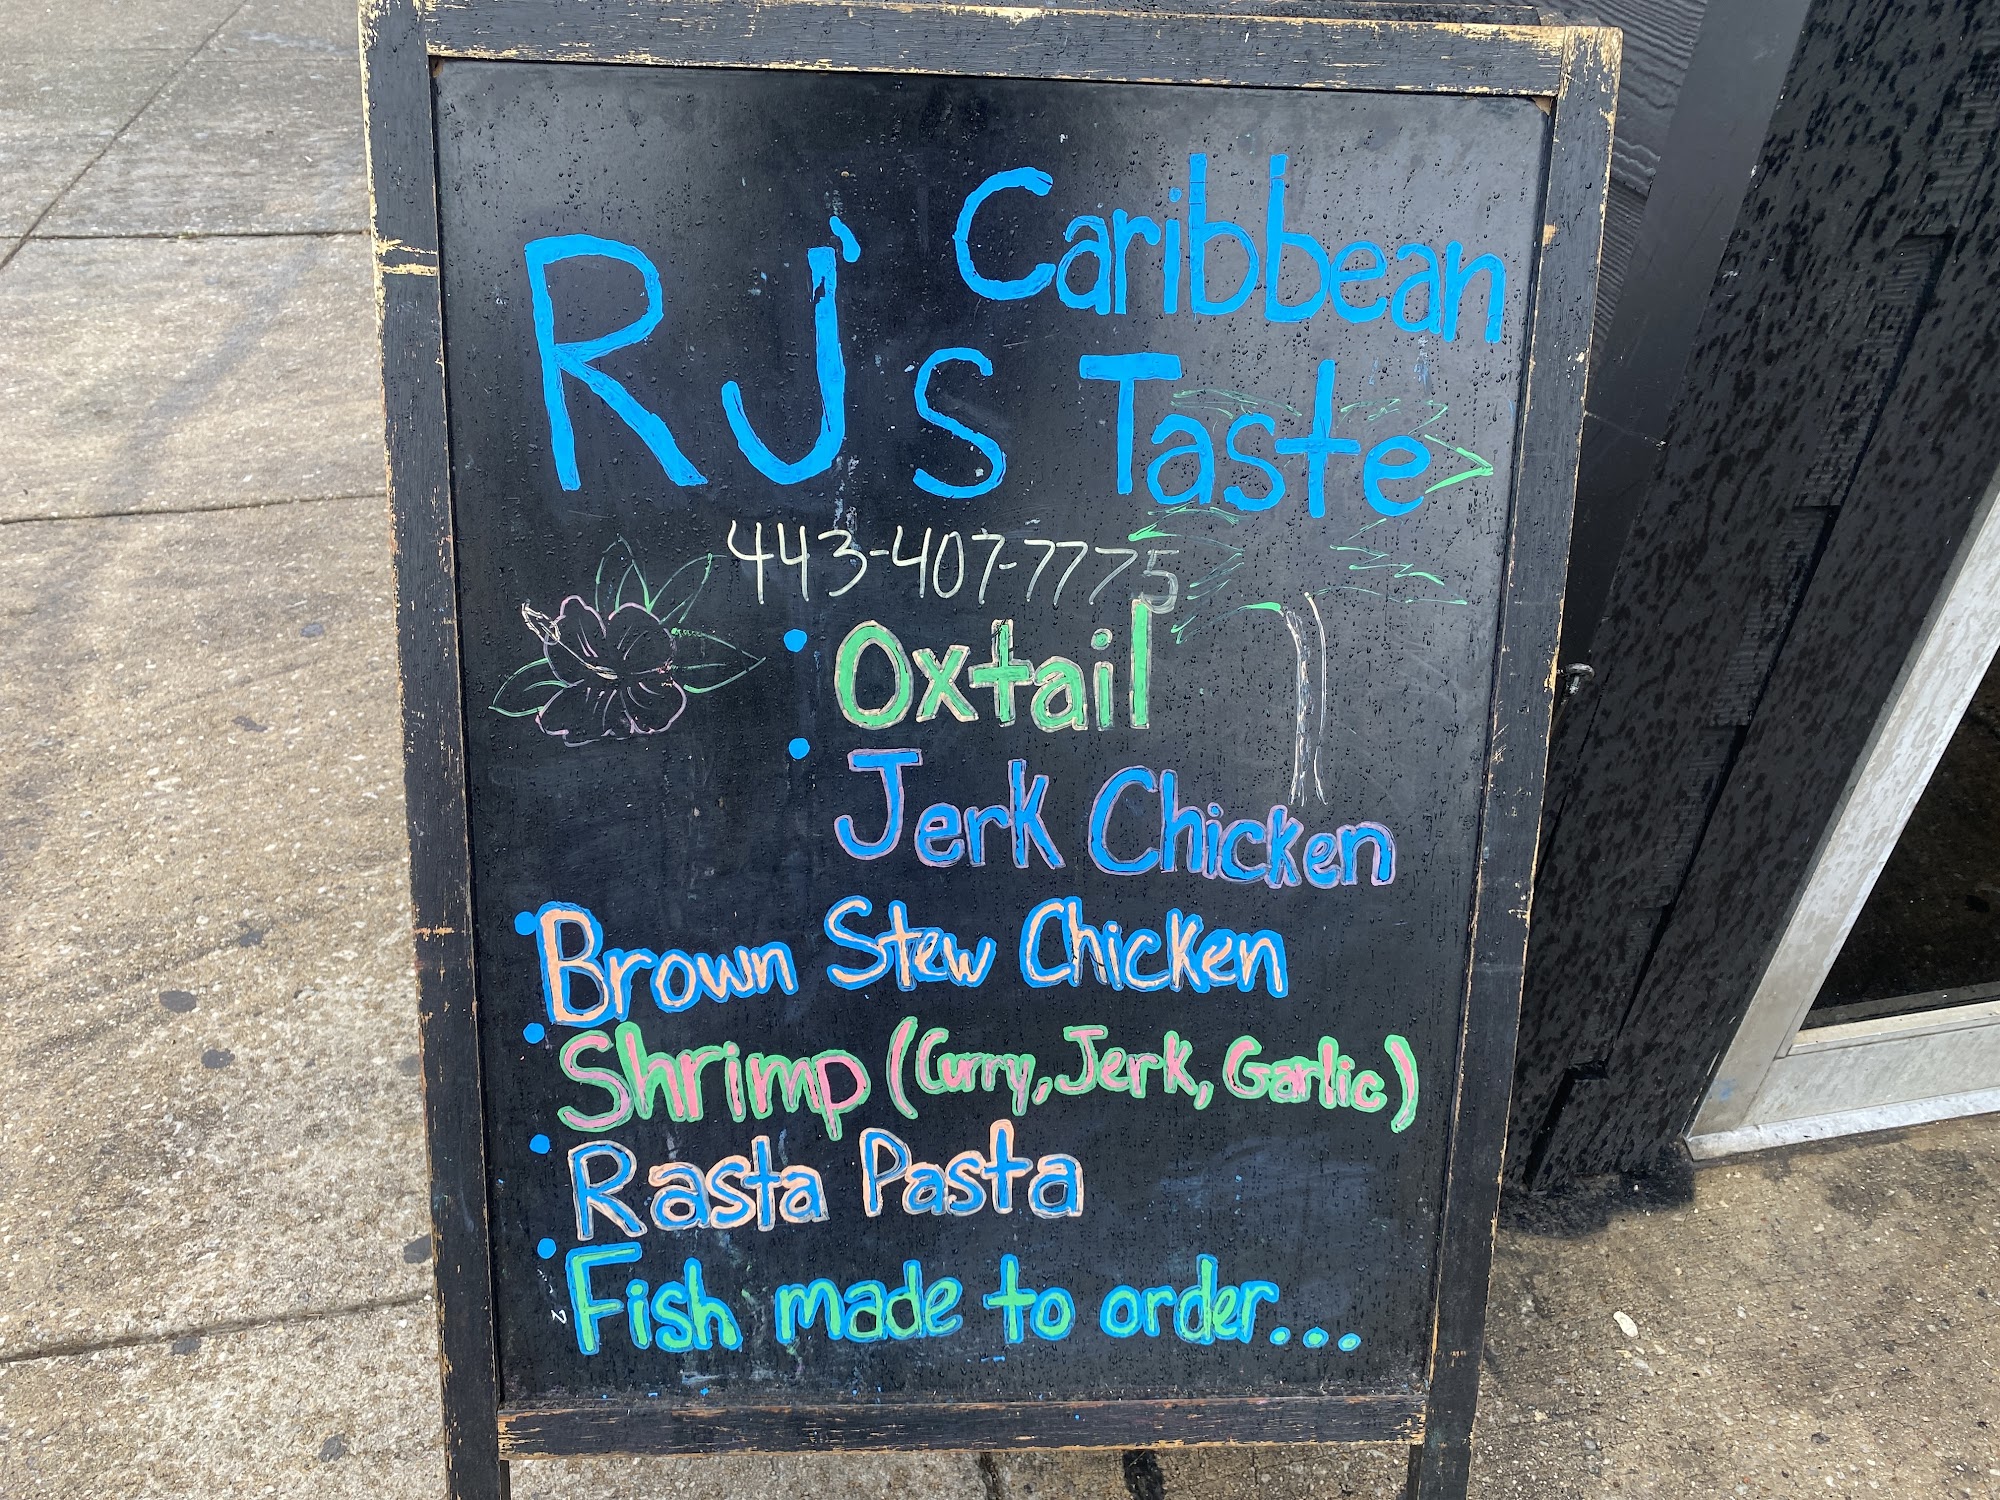 RJ's Caribbean
Taste
443-407-7775
• Oxtail
• Jerk Chicken
• Brown Stew Chicken
• Shrimp (Curry, Jerk, Garlic)
• Rasta Pasta
• Fish made to order...